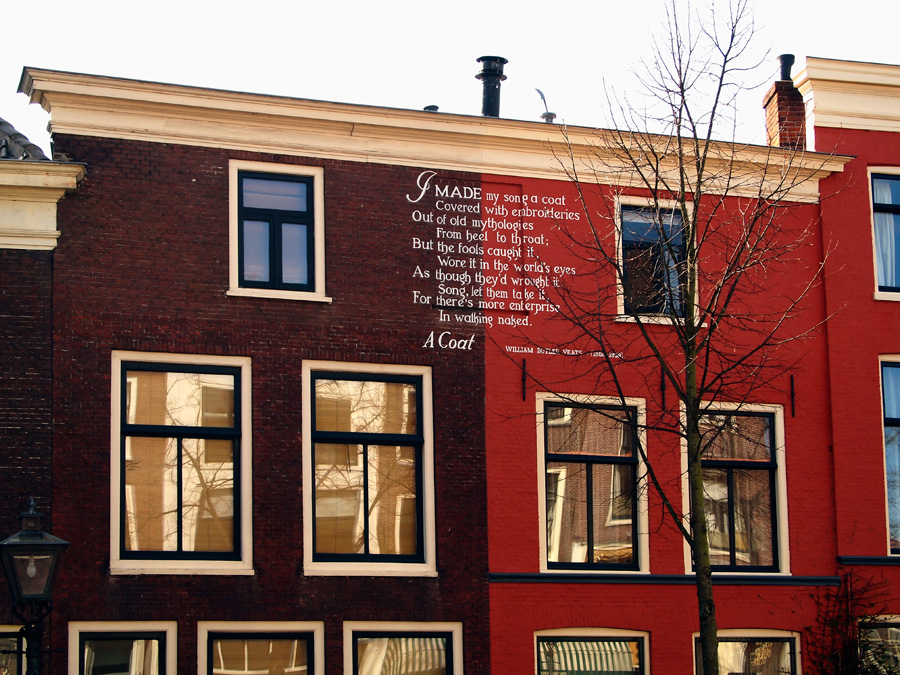 I MADE my song a coat
Covered with embroideries
Out of old mythologies
From heel to throat;
But the fools caught it,
Wore it in the world's eyes
As though they'd wrought it.
Song, let them take it,
For there's more enterprise
In walking naked.
A Coat
WILLIAM BUTLER YEATS